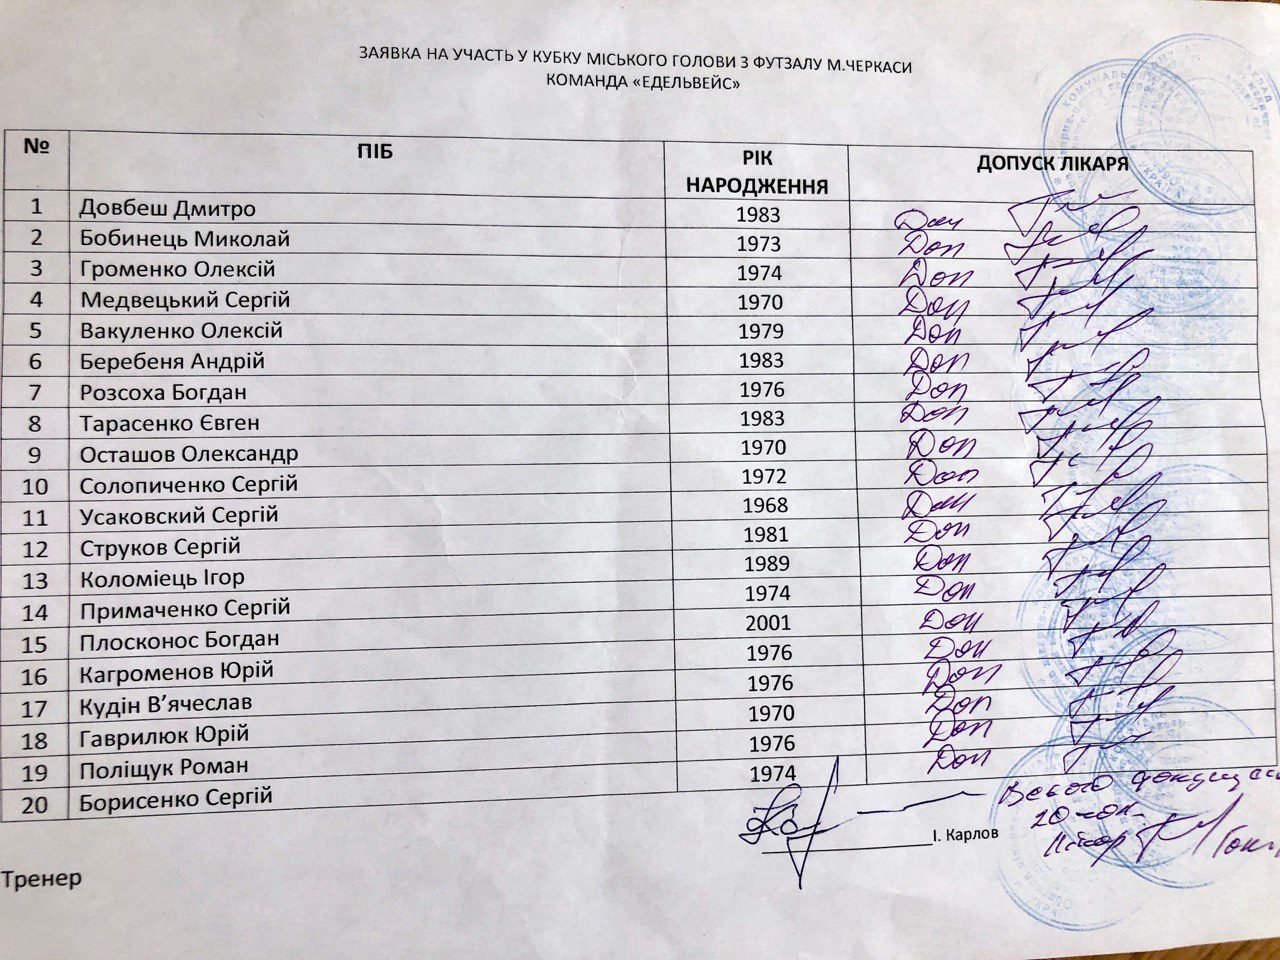 ЗАЯВКА НА УЧАСТЬ У КУБКУ МІСЬКОГО ГОЛОВИ З ФУТЗАЛУ М.ЧЕРКАСИ
КОМАНДА «ЕДЕЛЬВЕЙС»
№ ПІБ РІК НАРОДЖЕННЯ ДОПУСК ЛІКАРЯ
1 Довбеш Дмитро 1983 Доп
2 Бобинець Миколай 1973 Доп
3 Громенко Олексій 1974 Доп
4 Медвецький Сергій 1970 Доп
5 Вакуленко Олексій 1979 Доп
6 Беребеня Андрій 1983 Доп
7 Розсоха Богдан 1976 Доп
8 Тарасенко Євген 1983 Доп
9 Осташов Олександр 1970 Доп
10 Солопиченко Сергій 1972 Доп
11 Усаковский Сергій 1968 Доп
12 Струков Сергій 1981 Доп
13 Коломієць Ігор 1989 Доп
14 Примаченко Сергій 1974 Доп
15 Плосконос Богдан 2001 Доп
16 Кагроменов Юрій 1976 Доп
17 Кудін В’ячеслав 1976 Доп
18 Гаврилюк Юрій 1970 Доп
19 Поліщук Роман 1976 Доп
20 Борисенко Сергій 1974 Доп
Всього
20 чол.
І. Карлов
Лікар
Тренер